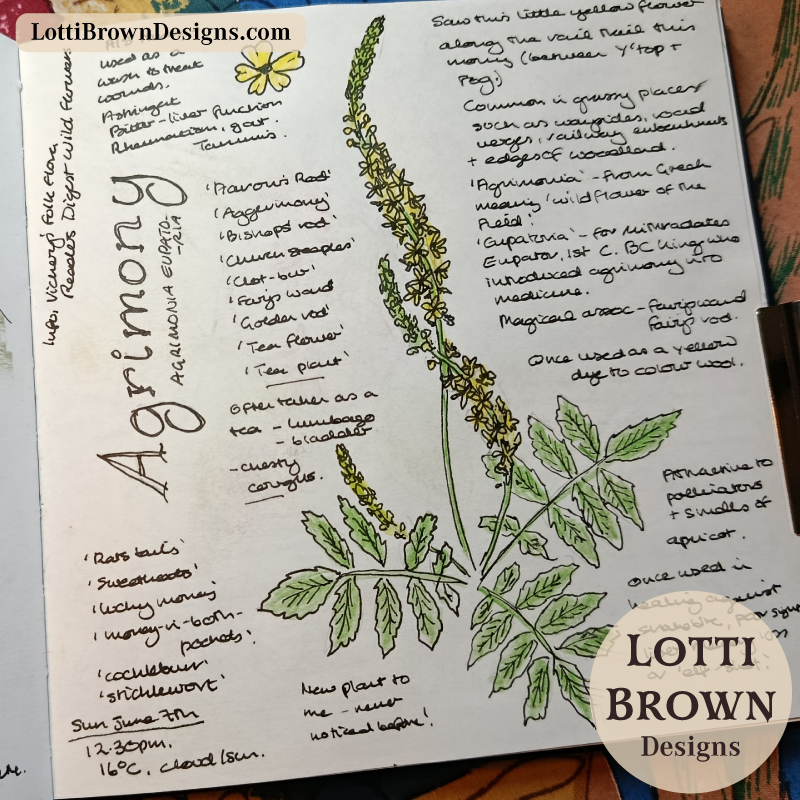 LottiBrownDesigns.com
used as a
wash to treat
wounds.
Astringent
Bitter - liver function
Rheumatism, gout.
Tannins.
Info: Vickery's Folk Flora,
Readers Digest Wild Flowers
Agrimony
AGRIMONIA EUPATO-
-RIA
'Aaron's Rod'
'Aggermony'
'Bishops rod'
'Church steeples'
'Clot-bur'
'Fairys wand'
'Golden rod'
'Tea flower'
'Tea plant'
Often taken as a
tea - lumbago
- bladder
- chesty
coughs.
'Rats tails'
'Sweethearts'
'lucky money'
'money-in-both-
pockets'
'cockleburr'
'sticklewort'
Sun June 7th
12.30pm.
16°C, cloud/sun.
New plant to
me - never
noticed before!
Saw this little yellow flower
along the rail trail this
morning (between Y'top +
Pog.)
Common in grassy places
such as waysides, road
verges, railway embankments
+ edges of woodland.
'Agrimonia' - from Greek
meaning 'wildflower of the
field'.
'Eupatoria' - for Mithradates
Eupator, 1st C. BC King who
introduced agrimony into
medicine.
Magical assoc - fairy wand
fairy rod.
Once used as a yellow
dye to colour wool.
Attractive to
pollinators
+ smells of
apricot.
Once used in
healing against
LOTTI
BROWN
Designs